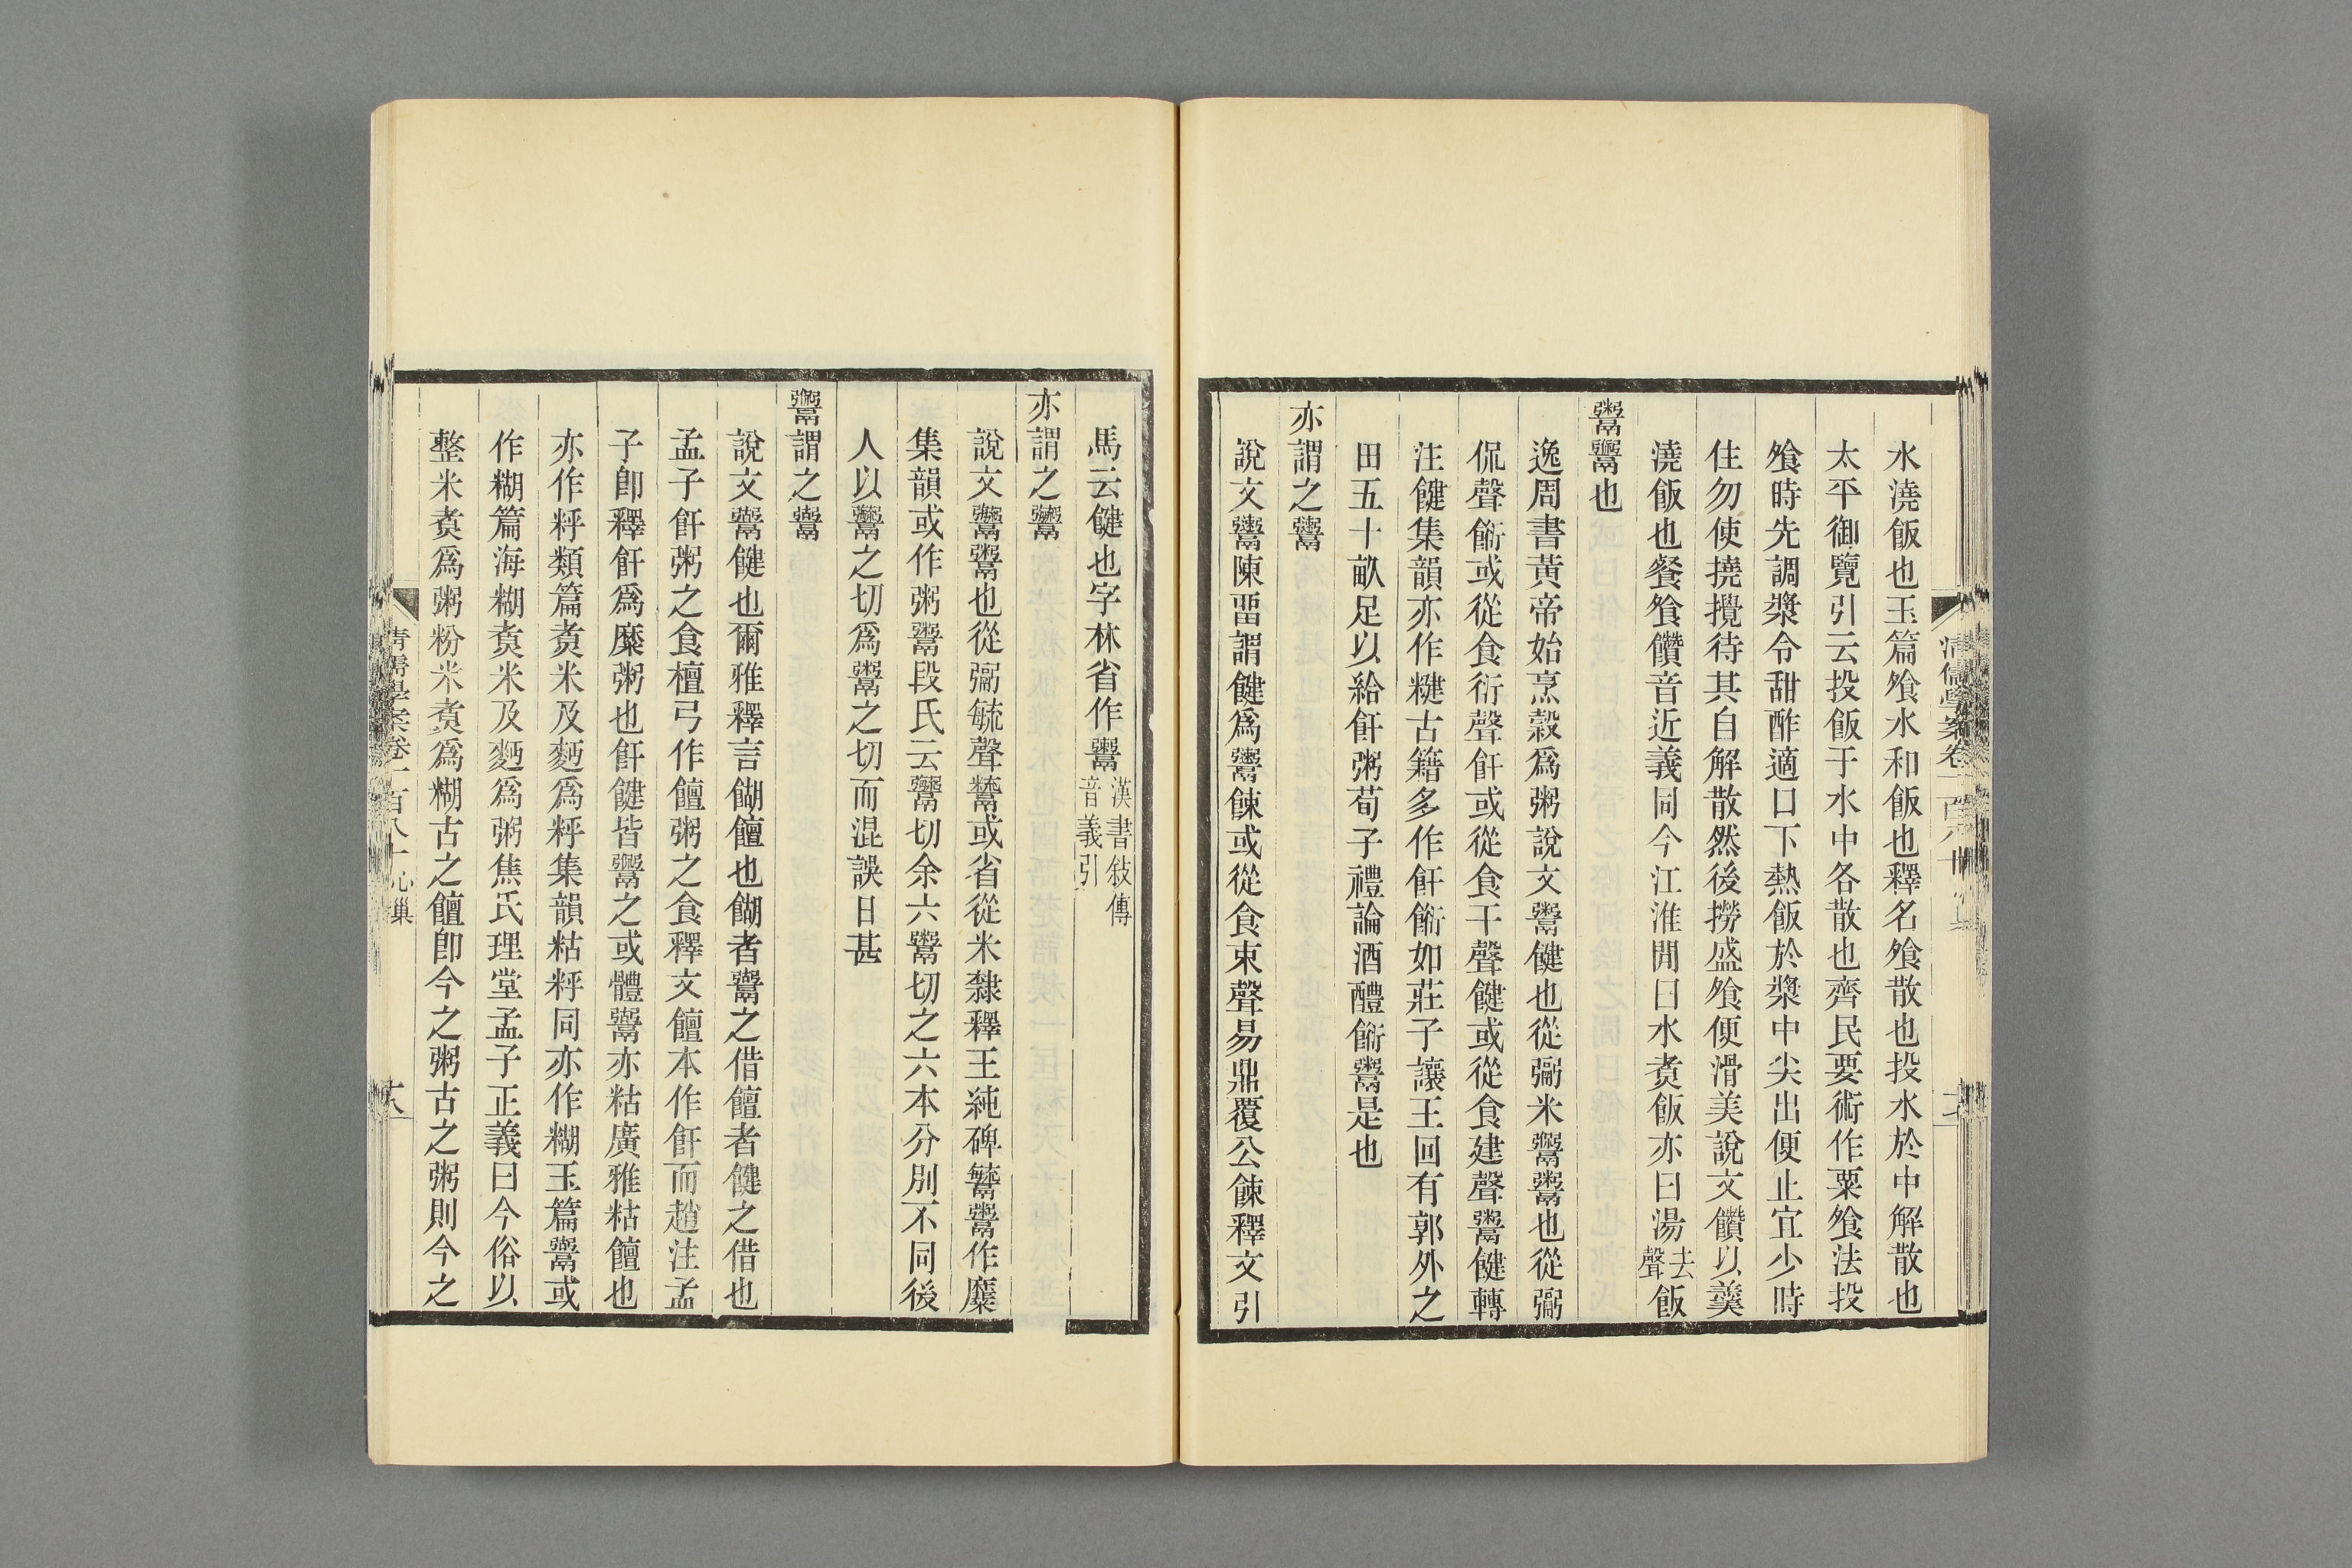 水澆飯也玉篇飧水和飯也釋名飧散也投水於中解散也
太平御覽引云投飯于水中各散也齊民要術作粟飧法投
飧時先調漿令甜酢適口下熱飯於漿中尖出便止宜少時
住勿使撓攪待其自解散然後撈盛飧便滑美說文饡以羹
澆飯也餐飧饡音近義同今江淮閒曰水煑飯亦曰湯去聲飯
鬻鬻也
逸周書黃帝始烹穀爲粥說文鬻鍵也從䰜米鬻鬻也從䰜
侃聲餰或從食衍聲飦或從食干聲健或從食建聲鬻健轉
注健集韻亦作䊕古籍多作飦餰如莊子讓王回有郭外之
田五十畝足以給飦粥荀子禮論酒醴餰鬻是也
亦謂之鬻
說文鬻陳畱謂健爲鬻餗或從食束聲易鼎覆公餗釋文引
馬云健也字林省作鬻漢書敍傳音義引
亦謂之鬻
說文鬻鬻也從䰜毓聲鬻或省從米隸釋王純碑鬻鬻作糜
集韻或作粥鬻段氏云鬻切余六鬻切之六本分別不同後
人以鬻之切爲鬻之切而混誤日甚
鬻謂之鬻
說文鬻健也爾雅釋言餬饘也餬者鬻之借饘者健之借也
孟子飦粥之食檀弓作饘粥之食釋文饘本作飦而趙注孟
子卽釋飦爲糜粥也飦健皆鬻之或體鬻亦粘廣雅粘饘也
亦作粰類篇煑米及麪爲粰集韻粘粰同亦作糊玉篇鬻或
作糊篇海糊煑米及麪爲粥焦氏理堂孟子正義曰今俗以
整米煑爲粥粉米煑爲糊古之饘卽今之粥古之粥則今之
清儒學案卷一百八十 心巢